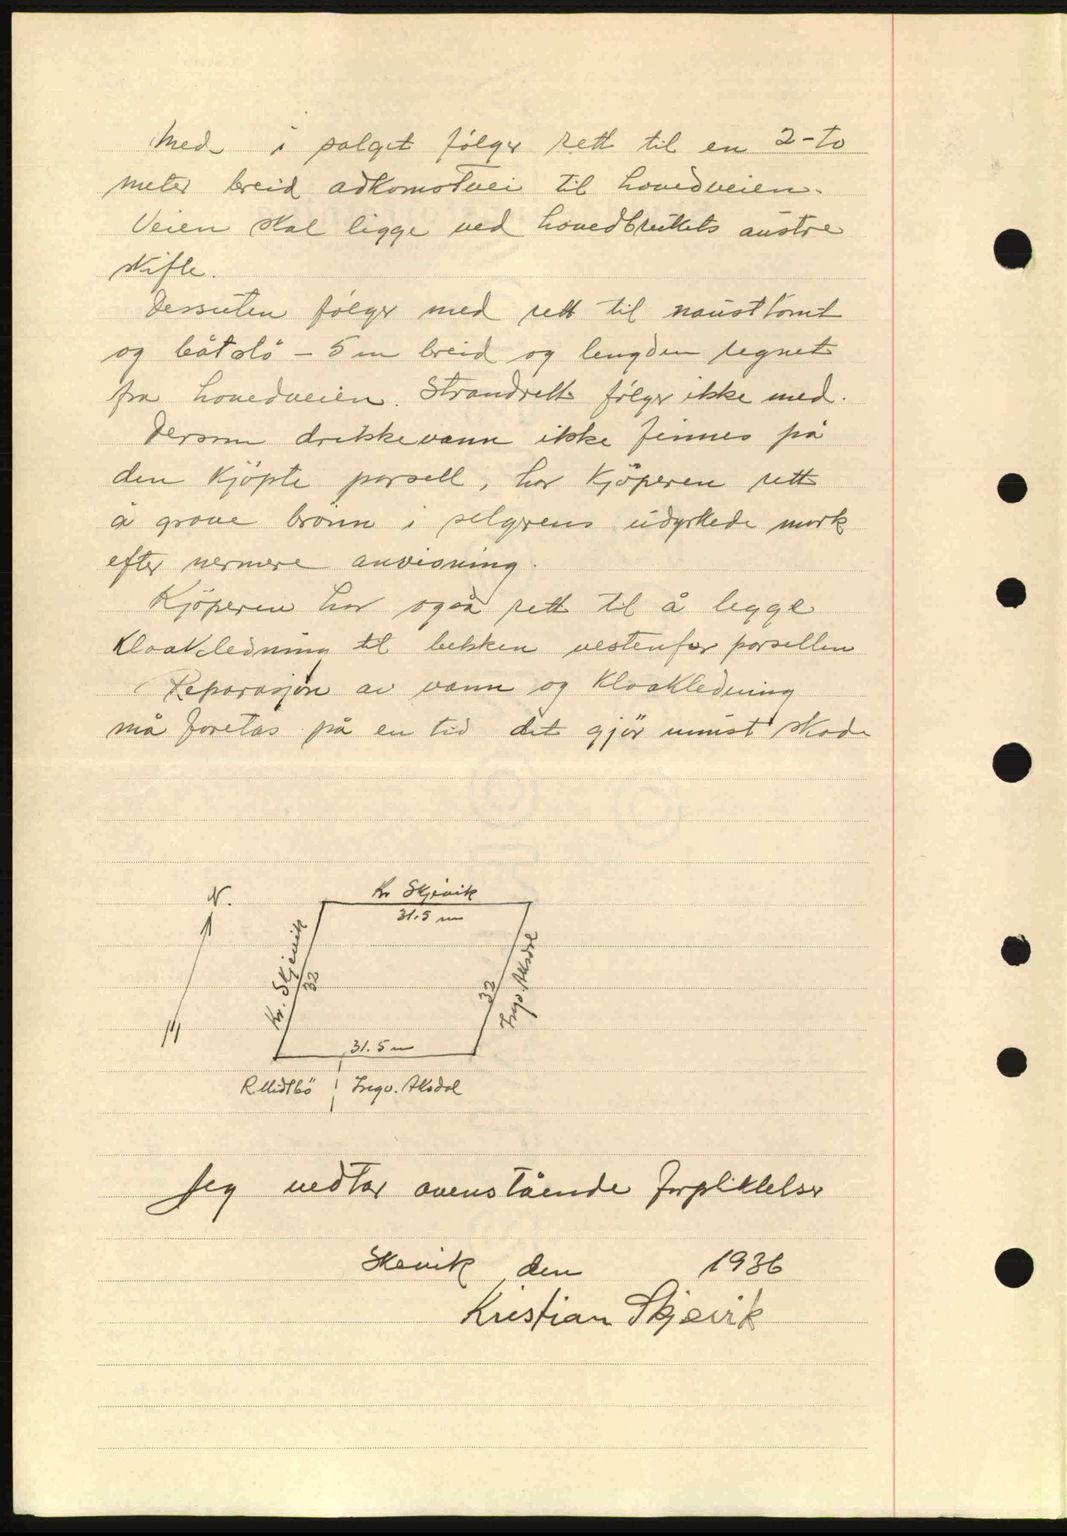 Med i salget følger rett til en 2-to
meter breid adkomstvei til hovedveien.
Veien skal ligge ved hovedbrukets austre
skifte.
Dessuten følger med rett til nausttomt
og båtstö – 5 m breid og lengden regnet
fra hovedveien. Strandrett følger ikke med.
Dersom drikkevann ikke finnes på
den kjöpte parsell, har kjöperen rett
å grave brönn i selgerens udyrkede mark
efter nermere anvisning.
Kjöperen har også rett til å legge
kloakledning til bekken vestenfor parsellen
Reparasjon av vann og kloakledning
må foretas på en tid det gjör minst skade
N.
Kr Skjevik
31.5 m
Kr. Skjevik
32
32
Ingv. Aksdal
31.5 m
R Midtbö
Ingv. Aksdal
Jeg vedtar ovenstående forpliktelser
Skevik den 1936
Kristian Skjevik